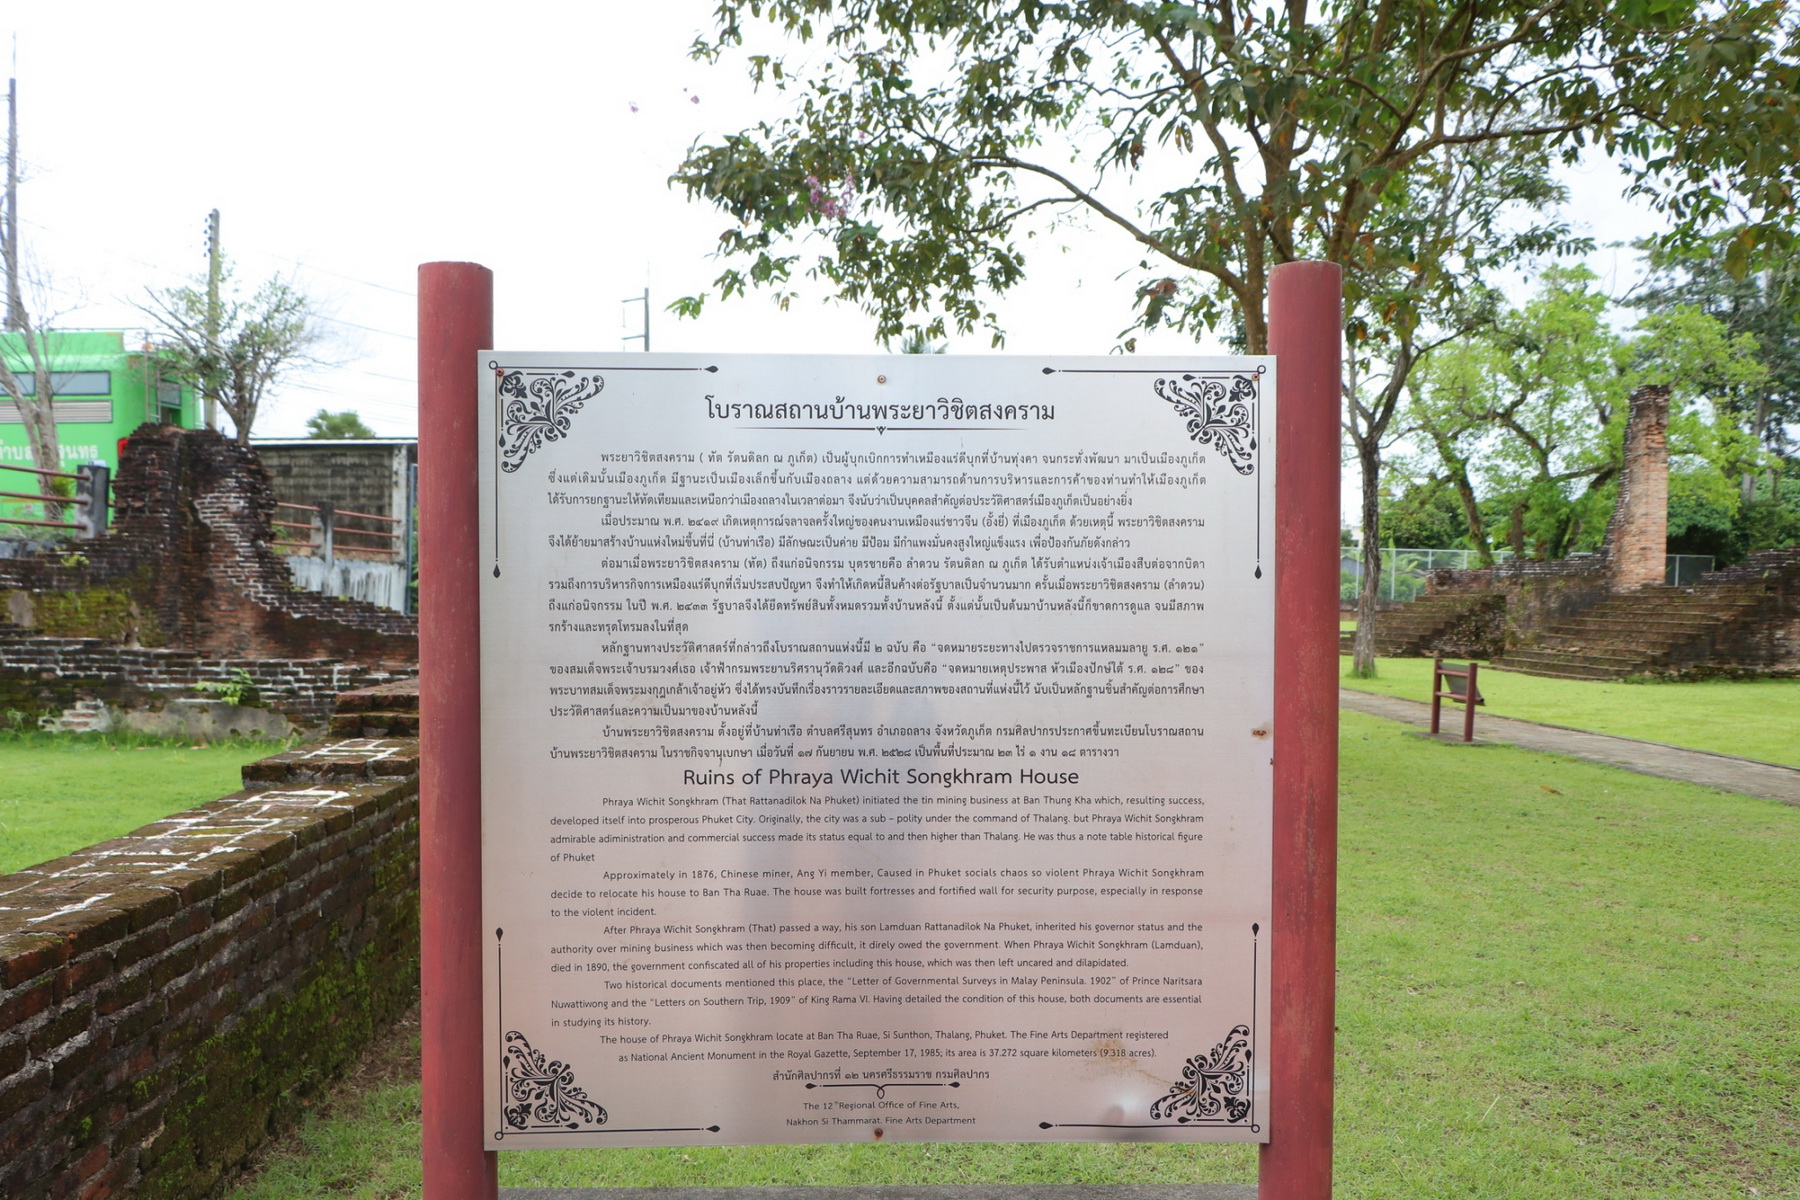 โบราณสถานบ้านพระยาวิชิตสงคราม
พระยาวิชิตสงคราม ( ทัต รัตนดิลก ณ ภูเก็ต) เป็นผู้บุกเบิกการทำเหมืองแร่ดีบุกที่บ้านทุ่งคา จนกระทั่งพัฒนา มาเป็นเมืองภูเก็ต
ซึ่งแต่เดิมนั้นเมืองภูเก็ต มีฐานะเป็นเมืองเล็กขึ้นกับเมืองถลาง แต่ด้วยความสามารถด้านการบริหารและการค้าของท่านทำให้เมืองภูเก็ต
ได้รับการยกฐานะให้ทัดเทียมและเหนือกว่าเมืองถลางในเวลาต่อมา จึงนับว่าเป็นบุคคลสำคัญต่อประวัติศาสตร์เมืองภูเก็ตเป็นอย่างยิ่ง
เมื่อประมาณ พ.ศ. ๒๔๑๙ เกิดเหตุการณ์จลาจลครั้งใหญ่ของคนงานเหมืองแร่ชาวจีน (อั้งยี่) ที่เมืองภูเก็ต ด้วยเหตุนี้ พระยาวิชิตสงคราม
จึงได้ย้ายมาสร้างบ้านแห่งใหม่ขึ้นที่นี่ (บ้านท่าเรือ) มีลักษณะเป็นค่าย มีป้อม มีกำแพงมั่นคงสูงใหญ่แข็งแรง เพื่อป้องกันภัยดังกล่าว
ต่อมาเมื่อพระยาวิชิตสงคราม (ทัต) ถึงแก่อนิจกรรม บุตรชายคือ ลำดวน รัตนดิลก ณ ภูเก็ต ได้รับตำแหน่งเจ้าเมืองสืบต่อจากบิดา
รวมถึงการบริหารกิจการเหมืองแร่ดีบุกที่เริ่มประสบปัญหา จึงทำให้เกิดหนี้สินค้างต่อรัฐบาลเป็นจำนวนมาก ครั้นเมื่อพระยาวิชิตสงคราม (ลำดวน)
ถึงแก่อนิจกรรม ในปี พ.ศ. ๒๔๓๓ รัฐบาลจึงได้ยึดทรัพย์สินทั้งหมดรวมทั้งบ้านหลังนี้ ตั้งแต่นั้นเป็นต้นมาบ้านหลังนี้ก็ขาดการดูแล จนมีสภาพ
รกร้างและทรุดโทรมลงในที่สุด
หลักฐานทางประวัติศาสตร์ที่กล่าวถึงโบราณสถานแห่งนี้มี ๒ ฉบับ คือ “จดหมายระยะทางไปตรวจราชการแหลมมลายู ร.ศ. ๑๒๑”
ของสมเด็จพระเจ้าบรมวงศ์เธอ เจ้าฟ้ากรมพระยานริศรานุวัดติวงศ์ และอีกฉบับคือ “จดหมายเหตุประพาส หัวเมืองปักษ์ใต้ ร.ศ. ๑๒๘” ของ
พระบาทสมเด็จพระมงกุฎเกล้าเจ้าอยู่หัว ซึ่งได้ทรงบันทึกเรื่องราวรายละเอียดและสภาพของสถานที่แห่งนี้ไว้ นับเป็นหลักฐานชิ้นสำคัญต่อการศึกษา
ประวัติศาสตร์และความเป็นมาของบ้านหลังนี้
บ้านพระยาวิชิตสงคราม ตั้งอยู่ที่บ้านท่าเรือ ตำบลศรีสุนทร อำเภอถลาง จังหวัดภูเก็ต กรมศิลปากรประกาศขึ้นทะเบียนโบราณสถาน
บ้านพระยาวิชิตสงคราม ในราชกิจจานุเบกษา เมื่อวันที่ ๑๗ กันยายน พ.ศ. ๒๕๒๘ เป็นพื้นที่ประมาณ ๒๓ ไร่ ๑ งาน ๑๘ ตารางวา
Ruins of Phraya Wichit Songkhram House
Phraya Wichit Songkhram (That Rattanadilok Na Phuket) initiated the tin mining business at Ban Thung Kha which, resulting success,
developed itself into prosperous Phuket City. Originally, the city was a sub – polity under the command of Thalang. but Phraya Wichit Songkhram
admirable adiministration and commercial success made its status equal to and then higher than Thalang. He was thus a note table historical figure
of Phuket
Approximately in 1876, Chinese miner, Ang Yi member, Caused in Phuket socials chaos so violent Phraya Wichit Songkhram
decide to relocate his house to Ban Tha Ruae. The house was built fortresses and fortified wall for security purpose, especially in response
to the violent incident.
After Phraya Wichit Songkhram (That) passed a way, his son Lamduan Rattanadilok Na Phuket, inherited his governor status and the
authority over mining business which was then becoming difficult, it direly owed the government. When Phraya Wichit Songkhram (Lamduan),
died in 1890, the government confiscated all of his properties including this house, which was then left uncared and dilapidated.
Two historical documents mentioned this place, the “Letter of Governmental Surveys in Malay Peninsula. 1902” of Prince Naritsara
Nuwattiwong and the “Letters on Southern Trip, 1909” of King Rama VI. Having detailed the condition of this house, both documents are essential
in studying its history.
The house of Phraya Wichit Songkhram locate at Ban Tha Ruae, Si Sunthon, Thalang, Phuket. The Fine Arts Department registered
as National Ancient Monument in the Royal Gazette, September 17, 1985; its area is 37.272 square kilometers (9.318 acres).
สำนักศิลปากรที่ ๑๒ นครศรีธรรมราช กรมศิลปากร
The 12th Regional Office of Fine Arts,
Nakhon Si Thammarat. Fine Arts Department